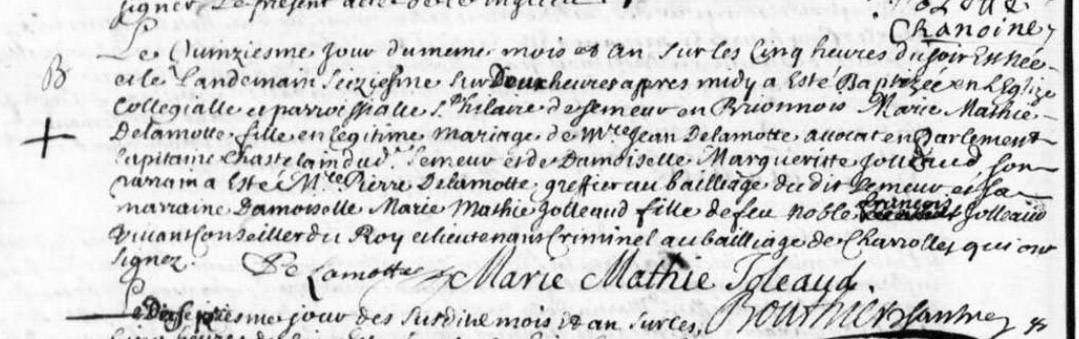 signer le present acte
Chanoine
Le Quinziesme jour du meme mois et an sur les Cinq heures du soir Est née
B et le Landemain seiziesme sur Deux heures apres midy a Esté Baptizée en L'Eglize
Collegialle et parroissialle St hilaire de semeur en Brionnois Marie Mathie
Delamotte fille en legitime mariage de Mre Jean Delamotte avocat en Parlement
Capitaine Chastelain dud. Semeur et de Damoiselle Margueritte Jolleaud son
parrain a Esté Mre Pierre Delamotte greffier au bailliage du dit Semeur et sa
marraine Damoiselle Marie Mathie Jolleaud fille de feu noble françois Jolleaud
vivant Conseiller du Roy et lieutenant Criminel au bailliage de Charrolles qui ont
signez. De Lamotte Marie Mathie Joleaud
Le Dixseptiesme jour des susdits mois et an sur les
Cinq heures